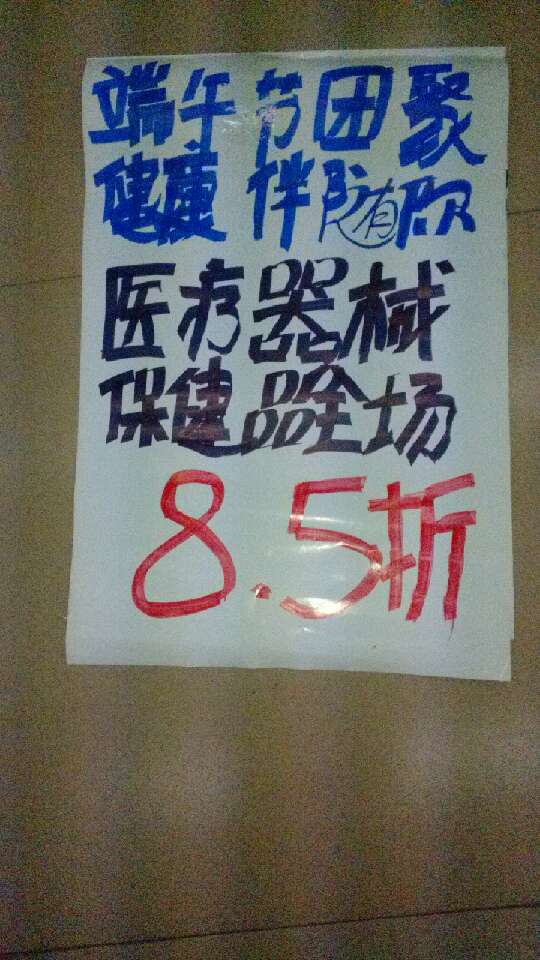 端午节团聚
健康伴随
医疗器械
保健品全场
8.5折